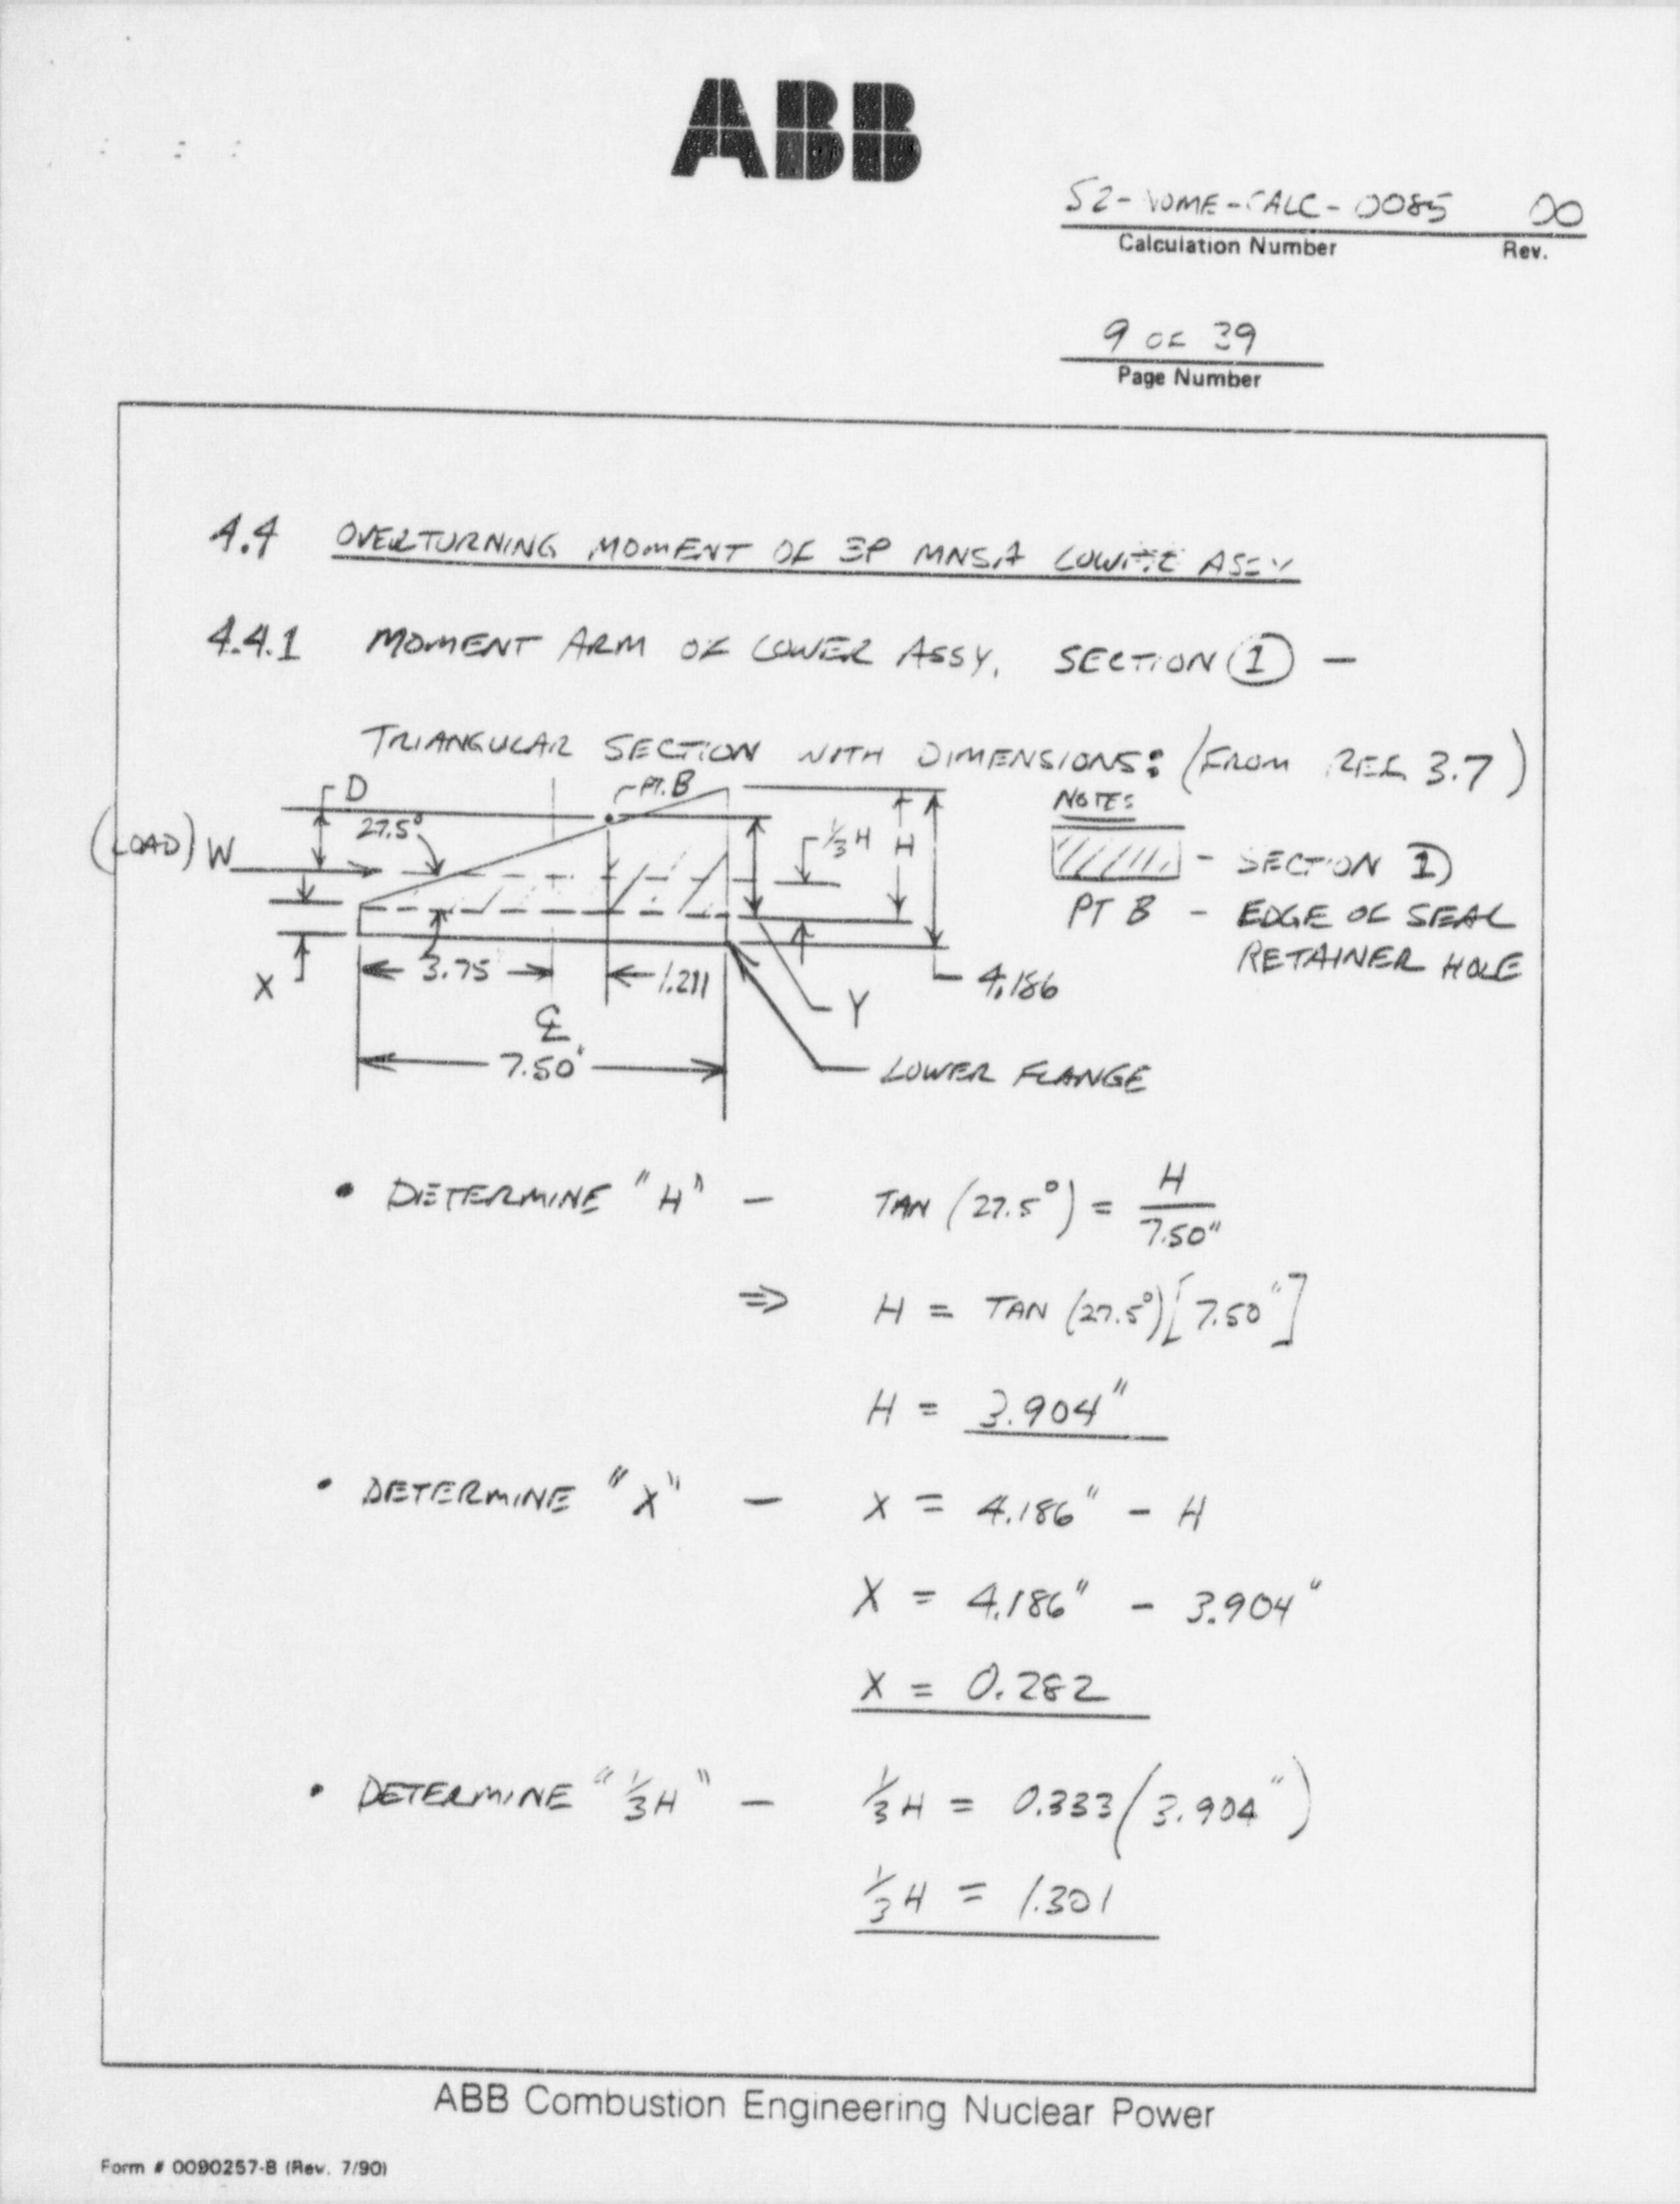 ABB
S2-NOME-CALC-0085 00
Calculation Number Rev.
9 OF 39
Page Number
4.4 OVERTURNING MOMENT OF MNSA LOWER ASSY
4.4.1 MOMENT ARM OF LOWER ASSY. SECTION ① –
TRIANGULAR SECTION WITH DIMENSIONS: (FROM REF. 3.7)
D
PT. B
NOTE:
27.5°
(LOAD) W
1/3 H
H
- SECTION ①
PT B - EDGE OF SEAL
RETAINER HOLE
X
3.75
1.211
Y
4.186
℄
7.50"
LOWER FLANGE
• DETERMINE "H" – TAN (27.5°) = H / 7.50"
⇒ H = TAN (27.5°)[7.50"]
H = 3.904"
• DETERMINE "X" – X = 4.186" - H
X = 4.186" - 3.904"
X = 0.282
• DETERMINE "1/3 H" – 1/3 H = 0.333 (3.904")
1/3 H = 1.301
ABB Combustion Engineering Nuclear Power
Form # 0090257-B (Rev. 7/90)